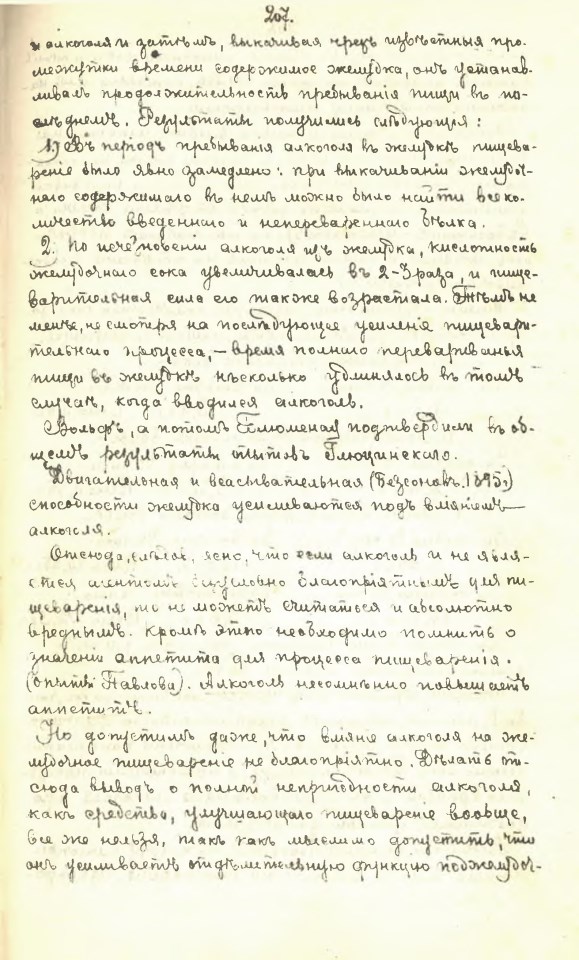 207.
и алкоголя и затѣмъ, выкачивая чрезъ извѣстныя про-
межутки времени содержимое желудка, онъ устанав-
ливалъ продолжительность пребыванія пищи въ по-
слѣднемъ. Результаты получились слѣдующія:
1) Въ періодъ пребыванія алкоголя въ желудкѣ пищева-
реніе было явно замедлено: при выкачиваніи желудоч-
наго содержимаго въ немъ можно было найти все ко-
личество введеннаго и непереваженнаго бѣлка.
2. По исчезновеніи алкоголя изъ желудка, кислотность
желудочнаго сока увеличивалась въ 2-3 раза, и пище-
варительная сила его также возрастала. Тѣмъ не
менѣе, не смотря на послѣдующее усиленіе пищевари-
тельнаго процесса, — время полнаго перевариванья
пищи въ желудкѣ нѣсколько удлинялось въ томъ
случаѣ, когда вводился алкоголь.
Вольфъ, а потомъ Блюменау подтвердили въ об-
щемъ результаты опытовъ Глюцинскаго.
Двигательная и всасывательная (Безсоновъ. 1895.)
способности желудка усиливаются подъ вліяніемъ
алкоголя.
Отсюда, ясно, что если алкоголь и не явля-
ется агентомъ безусловно благопріятнымъ для пи-
щеваренія, то не можетъ считаться и абсолютно
вреднымъ. Кромѣ этого необходимо помнить о
значеніи аппетита для процесса пищеваренія.
(опыты Павлова). Алкоголь несомнѣнно повышаетъ
аппетитъ.
Но допустимъ даже, что вліяніе алкоголя на же-
лудочное пищевареніе не благопріятно. Дѣлать от-
сюда выводъ о полной непригодности алкоголя,
какъ средства, улучшающаго пищевареніе вообще,
все же нельзя, такъ какъ мыслимо допустить, что
онъ усиливаетъ отдѣлительную функцію поджелудоч-